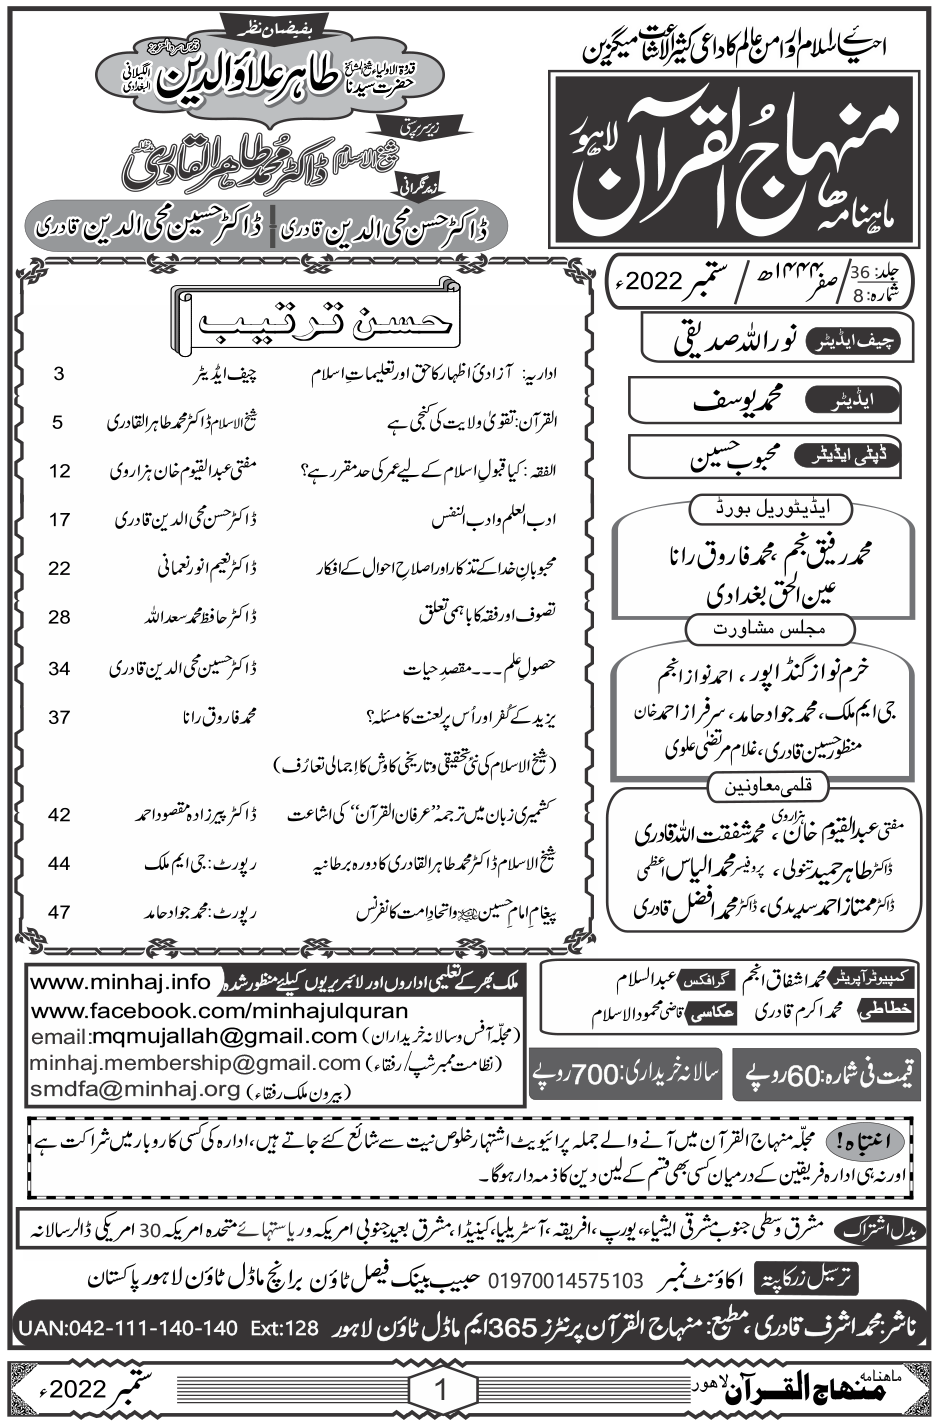 احیائے اسلام اور امن عالم کا داعی کثیر الاشاعت میگزین
ماہنامہ منہاج القرآن لاہور
بفیضان نظر
قدوۃ الاولیاء شیخ المشائخ حضرت سیدنا طاہر علاؤ الدین الگیلانی البغدادی
زیر سرپرستی
شیخ الاسلام ڈاکٹر محمد طاہر القادری
زیر نگرانی
ڈاکٹر حسن محی الدین قادری | ڈاکٹر حسین محی الدین قادری
جلد: 36 / صفر ۱۴۴۴ھ / ستمبر 2022ء
شمارہ: 8
چیف ایڈیٹر نور اللہ صدیقی
ایڈیٹر محمد یوسف
ڈپٹی ایڈیٹر محبوب حسین
ایڈیٹوریل بورڈ
محمد رفیق نجم، محمد فاروق رانا
عین الحق بغدادی
مجلس مشاورت
خرم نواز گنڈاپور، احمد نواز انجم
جی ایم ملک، محمد جواد حامد، سرفراز احمد خان
منظور حسین قادری، غلام مرتضیٰ علوی
قلمی معاونین
مفتی عبدالقیوم خان ہزاروی، محمد شفقت اللہ قادری
ڈاکٹر طاہر حمید تنولی، پروفیسر محمد الیاس اعظمی
ڈاکٹر ممتاز احمد سدیدی، ڈاکٹر محمد افضل قادری
حسن ترتیب
اداریہ: آزادیٔ اظہار کا حق اور تعلیماتِ اسلام چیف ایڈیٹر 3
القرآن: تقویٰ ولایت کی کنجی ہے شیخ الاسلام ڈاکٹر محمد طاہر القادری 5
الفقہ: کیا قبولِ اسلام کے لیے عمر کی حد مقرر ہے؟ مفتی عبدالقیوم خان ہزاروی 12
ادب العلم و ادب النفس ڈاکٹر حسن محی الدین قادری 17
محبوبانِ خدا کے تذکار اور اصلاحِ احوال کے افکار ڈاکٹر نعیم انور نعمانی 22
تصوف اور فقہ کا باہمی تعلق ڈاکٹر حافظ محمد سعداللہ 28
حصولِ علم۔۔۔ مقصدِ حیات ڈاکٹر حسین محی الدین قادری 34
یزید کے کُفر اور اُس پر لعنت کا مسئلہ؟ محمد فاروق رانا 37
(شیخ الاسلام کی نئی تحقیقی و تاریخی کاوش کا اِجمالی تعارُف)
کشمیری زبان میں ترجمہ “عرفان القرآن” کی اشاعت ڈاکٹر پیرزادہ مقصود احمد 42
شیخ الاسلام ڈاکٹر محمد طاہر القادری کا دورہ برطانیہ رپورٹ: جی ایم ملک 44
پیغامِ امام حسین و اتحادِ امت کانفرنس رپورٹ: محمد جواد حامد 47
کمپیوٹر آپریٹر محمد اشفاق انجم گرافکس عبدالسلام
خطاطی محمد اکرم قادری عکاسی قاضی محمود الاسلام
ملک بھر کے تعلیمی اداروں اور لائبریریوں کیلئے منظور شدہ www.minhaj.info
www.facebook.com/minhajulquran
email:mqmujallah@gmail.com (مجلّہ آفس و سالانہ خریداران)
minhaj.membership@gmail.com (نظامت ممبر شپ/رفقاء)
smdfa@minhaj.org (بیرون ملک رفقاء)
قیمت فی شمارہ: 60 روپے
سالانہ خریداری: 700 روپے
انتباہ! مجلّہ منہاج القرآن میں آنے والے جملہ پرائیویٹ اشتہار خلوص نیت سے شائع کئے جاتے ہیں، ادارہ کی کسی کاروبار میں شراکت ہے
اور نہ ہی ادارہ فریقین کے درمیان کسی بھی قسم کے لین دین کا ذمہ دار ہوگا۔
بدل اشتراک مشرق وسطیٰ جنوب مشرقی ایشیاء، یورپ، افریقہ، آسٹریلیا، کینیڈا، مشرق بعید جنوبی امریکہ و ریاستہائے متحدہ امریکہ 30 امریکی ڈالر سالانہ
ترسیل زر کا پتہ اکاؤنٹ نمبر 01970014575103 حبیب بینک فیصل ٹاؤن برانچ ماڈل ٹاؤن لاہور پاکستان
ناشر: محمد اشرف قادری، مطبع: منہاج القرآن پرنٹرز 365 ایم ماڈل ٹاؤن لاہور UAN:042-111-140-140 Ext:128
ماہنامہ منہاج القرآن لاہور 1 ستمبر 2022ء